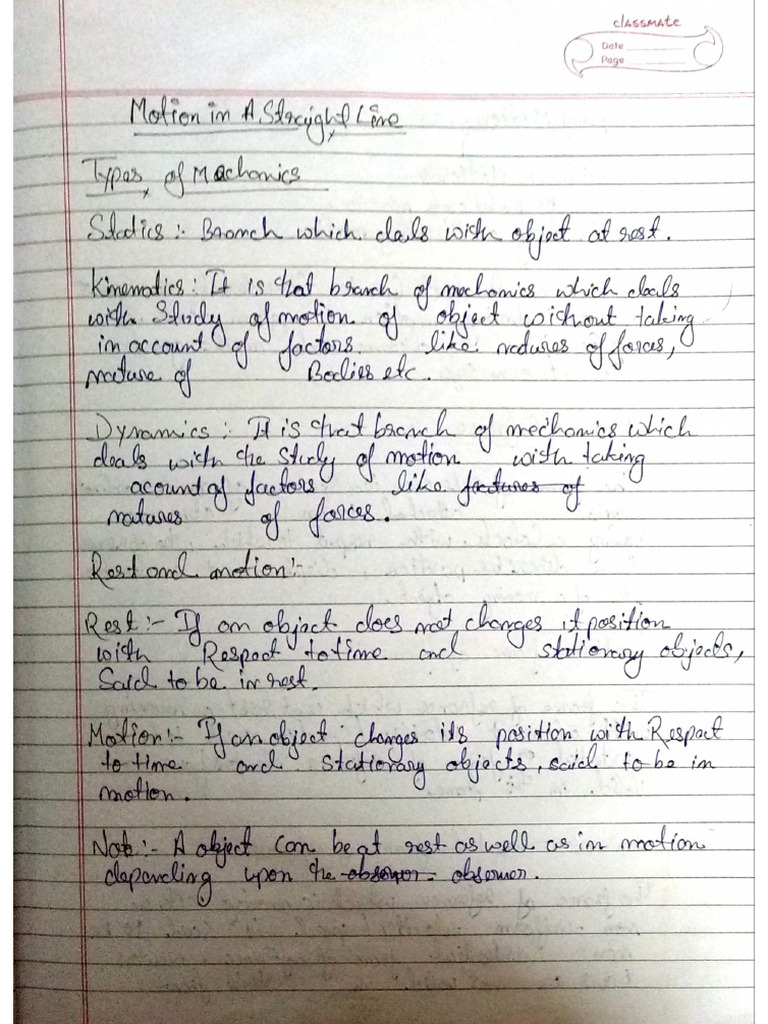 classmate
Date
Page
Motion in A Straight Line
Types of Mechonics
Statics :- Branch which deals with object at rest.
Kinematics : It is that branch of mechonics which deals
with Study of motion of object without taking
in account of factors. like natures of forces,
nature of Bodies etc.
Dynamics : It is that branch of mechonics which
deals with the Study of motion with taking
acount of factors like factures of
natures of forces.
Rest and motion :-
Rest :- If an object does not changes it position
with Respect to time and stationary objects,
Said to be in rest.
Motion :- If an object changes its position with Respect
to time and Stationary objects, said to be in
motion.
Note :- A object can be at rest as well as in motion
depanding upon the observer. observer.